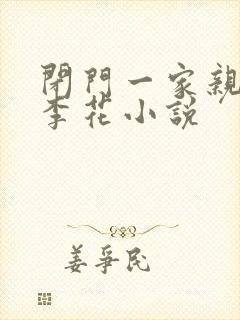 閉門一家親
李花小說
姜爭民